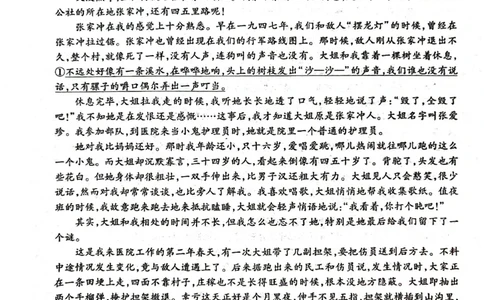 公社的所在地张家冲，还有四五里路呢！
张家冲在我的感觉上十分熟悉。早在一九四七年，我们和敌人“摆龙灯”的时候，曾经在
张家冲拉过锯。张家冲也曾经出现在我们的行军路线图上。那时候，敌人刚从张家冲退出不
久，整个村，就像死了一样，没有人声，连狗叫的声音也没有。大姐和我靠着一棵树坐着休息，
①不远处好像有一条溪水，在哗哗地响，头上的树枝发出“沙—沙—”的声音，我们谁也没有说
话，只有骡子的嚼口偶尔弄出一声叮当。
休息完毕，大姐拉我走的时候，我听她长长地透了口气，轻轻地说了声：“毁了，全毁了
吧！”我不知她是在发恨还是感慨……这事后，我才知道大姐原是张家冲人。大姐名字叫张爱
珍。我参加部队，到医院来当小鬼护理员时，她就是院里一个普通的护理员。
她对我比妈妈还好。那时我年龄还小，只十六岁，爱唱爱跳，哪儿热闹就往哪儿跑的这么
一个小鬼。而大姐却沉默寡言，三十四岁的人，看起来倒像有四五十岁了。背驼了，头发也有
些花白。但她身体却很粗壮，一双手伸出来，比男子汉还粗大有力。大姐见人只会憨笑，很少
说话，然而对我却常常谈谈，也比旁人了解我。我喜欢唱歌，大姐悄悄地帮我收集歌纸。值夜
班的时候，我故意跑来跑去地来抵抗瞌睡，大姐就会轻声悄语地说：“我看着，你打个盹吧！”
其实，大姐和我相处的时间并不长，但我怎么也忘不了她，特别是她最后给我们留下了一
个谜。
这是我来医院工作的第二年春天，有一次大姐带了几副担架，要把伤员送到后方去。不料
中途情况发生变化，竟与敌人遭遇上了。后来据跑出来的民工和伤员说，发生情况时，大家正
在一条田埂上走，四面不靠村子，庄稼也不是长得旺盛的时候，根本没地方隐蔽。大姐即抽出
两个手榴弹，掩护担架撤退。幸亏这天正好是个月黑夜，伸手不见五指，担架就横插到山沟里，